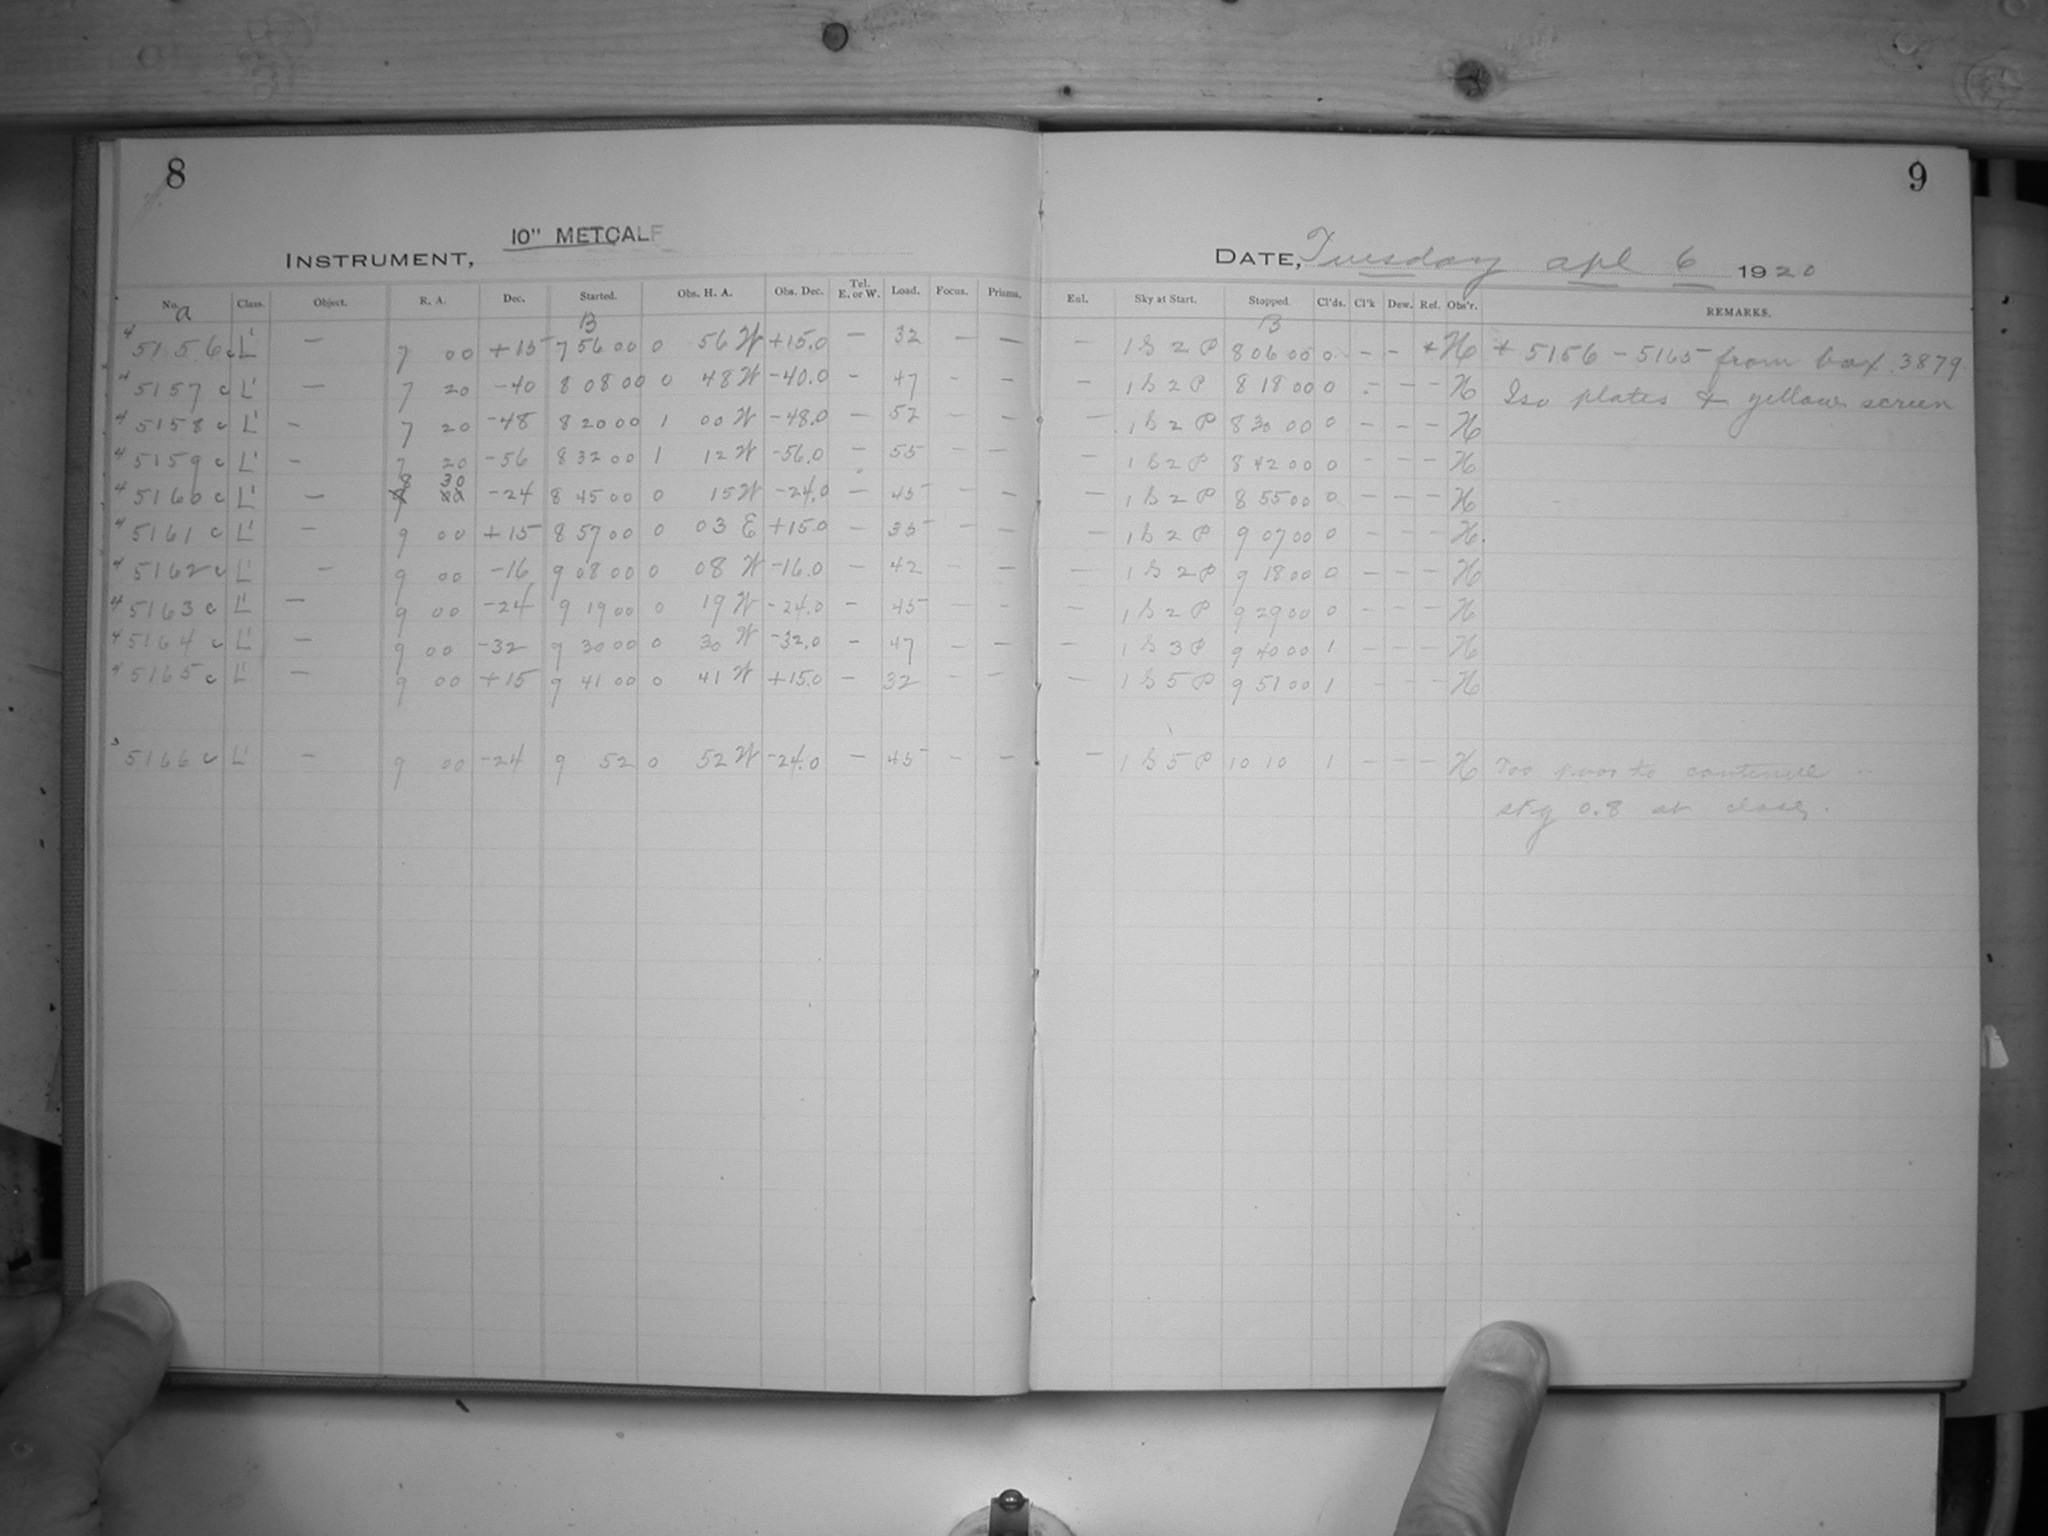 8
9
10" METCALF
INSTRUMENT,
DATE, Tuesday apl 6 1920
No. Class. Object. R. A. Dec. Started. Obs. H. A. Obs. Dec. Tel. E. or W. Load. Focus. Prisms. Eul. Sky at Start. Stopped. Cl'ds. Cl'k Dew. Ref. Obs'r. REMARKS.
a B B
4 5156 c L' — 7 00 +15 7 56 00 0 56 W +15.0 — 32 — — — 1 S 2 P 8 06 00 0 - - * H * 5156 - 5165 from box 3879
4 5157 c L' — 7 20 -40 8 08 00 0 48 W -40.0 - 47 - - — 1 S 2 P 8 18 00 0 - - - H Iso plates & yellow screen
4 5158 c L' - 7 20 -48 8 20 00 1 00 W -48.0 - 52 - - — 1 S 2 P 8 30 00 0 - - - H
4 5159 c L' - 7 20 -56 8 32 00 1 12 W -56.0 - 55 - - - 1 S 2 P 8 42 00 0 - - - H
4 5160 c L' — 8 30 -24 8 45 00 0 15 W -24.0 — 45 - - — 1 S 2 P 8 55 00 0 - - - H
4 5161 c L' — 9 00 +15 8 57 00 0 03 E +15.0 - 35 - - — 1 S 2 P 9 07 00 0 - - - H.
4 5162 c L' — 9 00 -16 9 08 00 0 08 W -16.0 - 42 - - — 1 S 2 P 9 18 00 0 - - - H
4 5163 c L' — 9 00 -24 9 19 00 0 19 W -24.0 - 45 - - - 1 S 2 P 9 29 00 0 - - - H
4 5164 c L' — 9 00 -32 9 30 00 0 30 W -32.0 - 47 - - - 1 S 3 P 9 40 00 1 - - - H
4 5165 c L' — 9 00 +15 9 41 00 0 41 W +15.0 — 32 - - - 1 S 5 P 9 51 00 1 - - - H
3 5166 c L' — 9 00 -24 9 52 0 52 W -24.0 — 45 - - — 1 S 5 P 10 10 1 - - - H Too poor to continue
sky 0.8 at close.